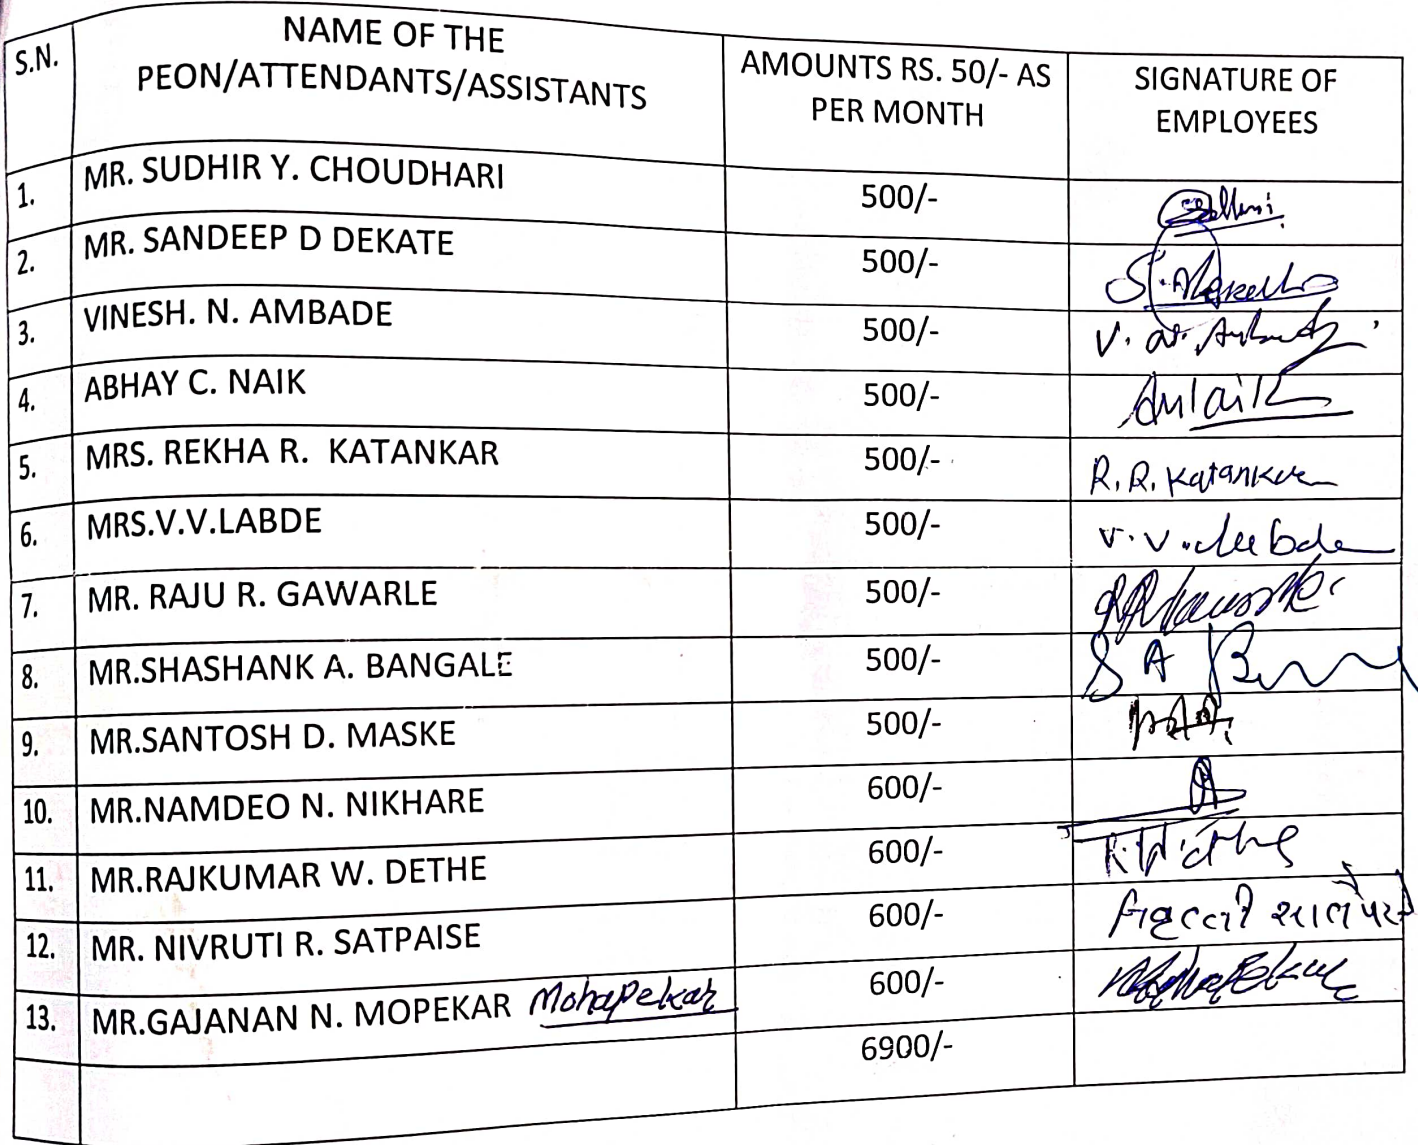 S.N.
NAME OF THE
PEON/ATTENDANTS/ASSISTANTS
AMOUNTS RS. 50/- AS
PER MONTH
SIGNATURE OF
EMPLOYEES
1. MR. SUDHIR Y. CHOUDHARI 500/-
2. MR. SANDEEP D DEKATE 500/-
3. VINESH. N. AMBADE 500/-
4. ABHAY C. NAIK 500/-
5. MRS. REKHA R. KATANKAR 500/- R.R. Katankar
6. MRS.V.V.LABDE 500/- V.V.
7. MR. RAJU R. GAWARLE 500/-
8. MR.SHASHANK A. BANGALE 500/- S A
9. MR.SANTOSH D. MASKE 500/-
10. MR.NAMDEO N. NIKHARE 600/-
11. MR.RAJKUMAR W. DETHE 600/-
12. MR. NIVRUTI R. SATPAISE 600/-
13. MR.GAJANAN N. MOPEKAR Mohapekar 600/-
6900/-